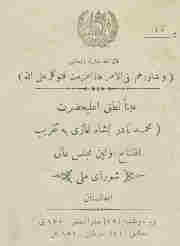 (وشاورهم فی الامر فاذا عزمت فتوکل علی الله)
عیناً نطق اعلیحضرت
(محمد نادر شاه غازی به تقریب
افتتاح اولین مجلس عالی
شورای ملی
افغانستان